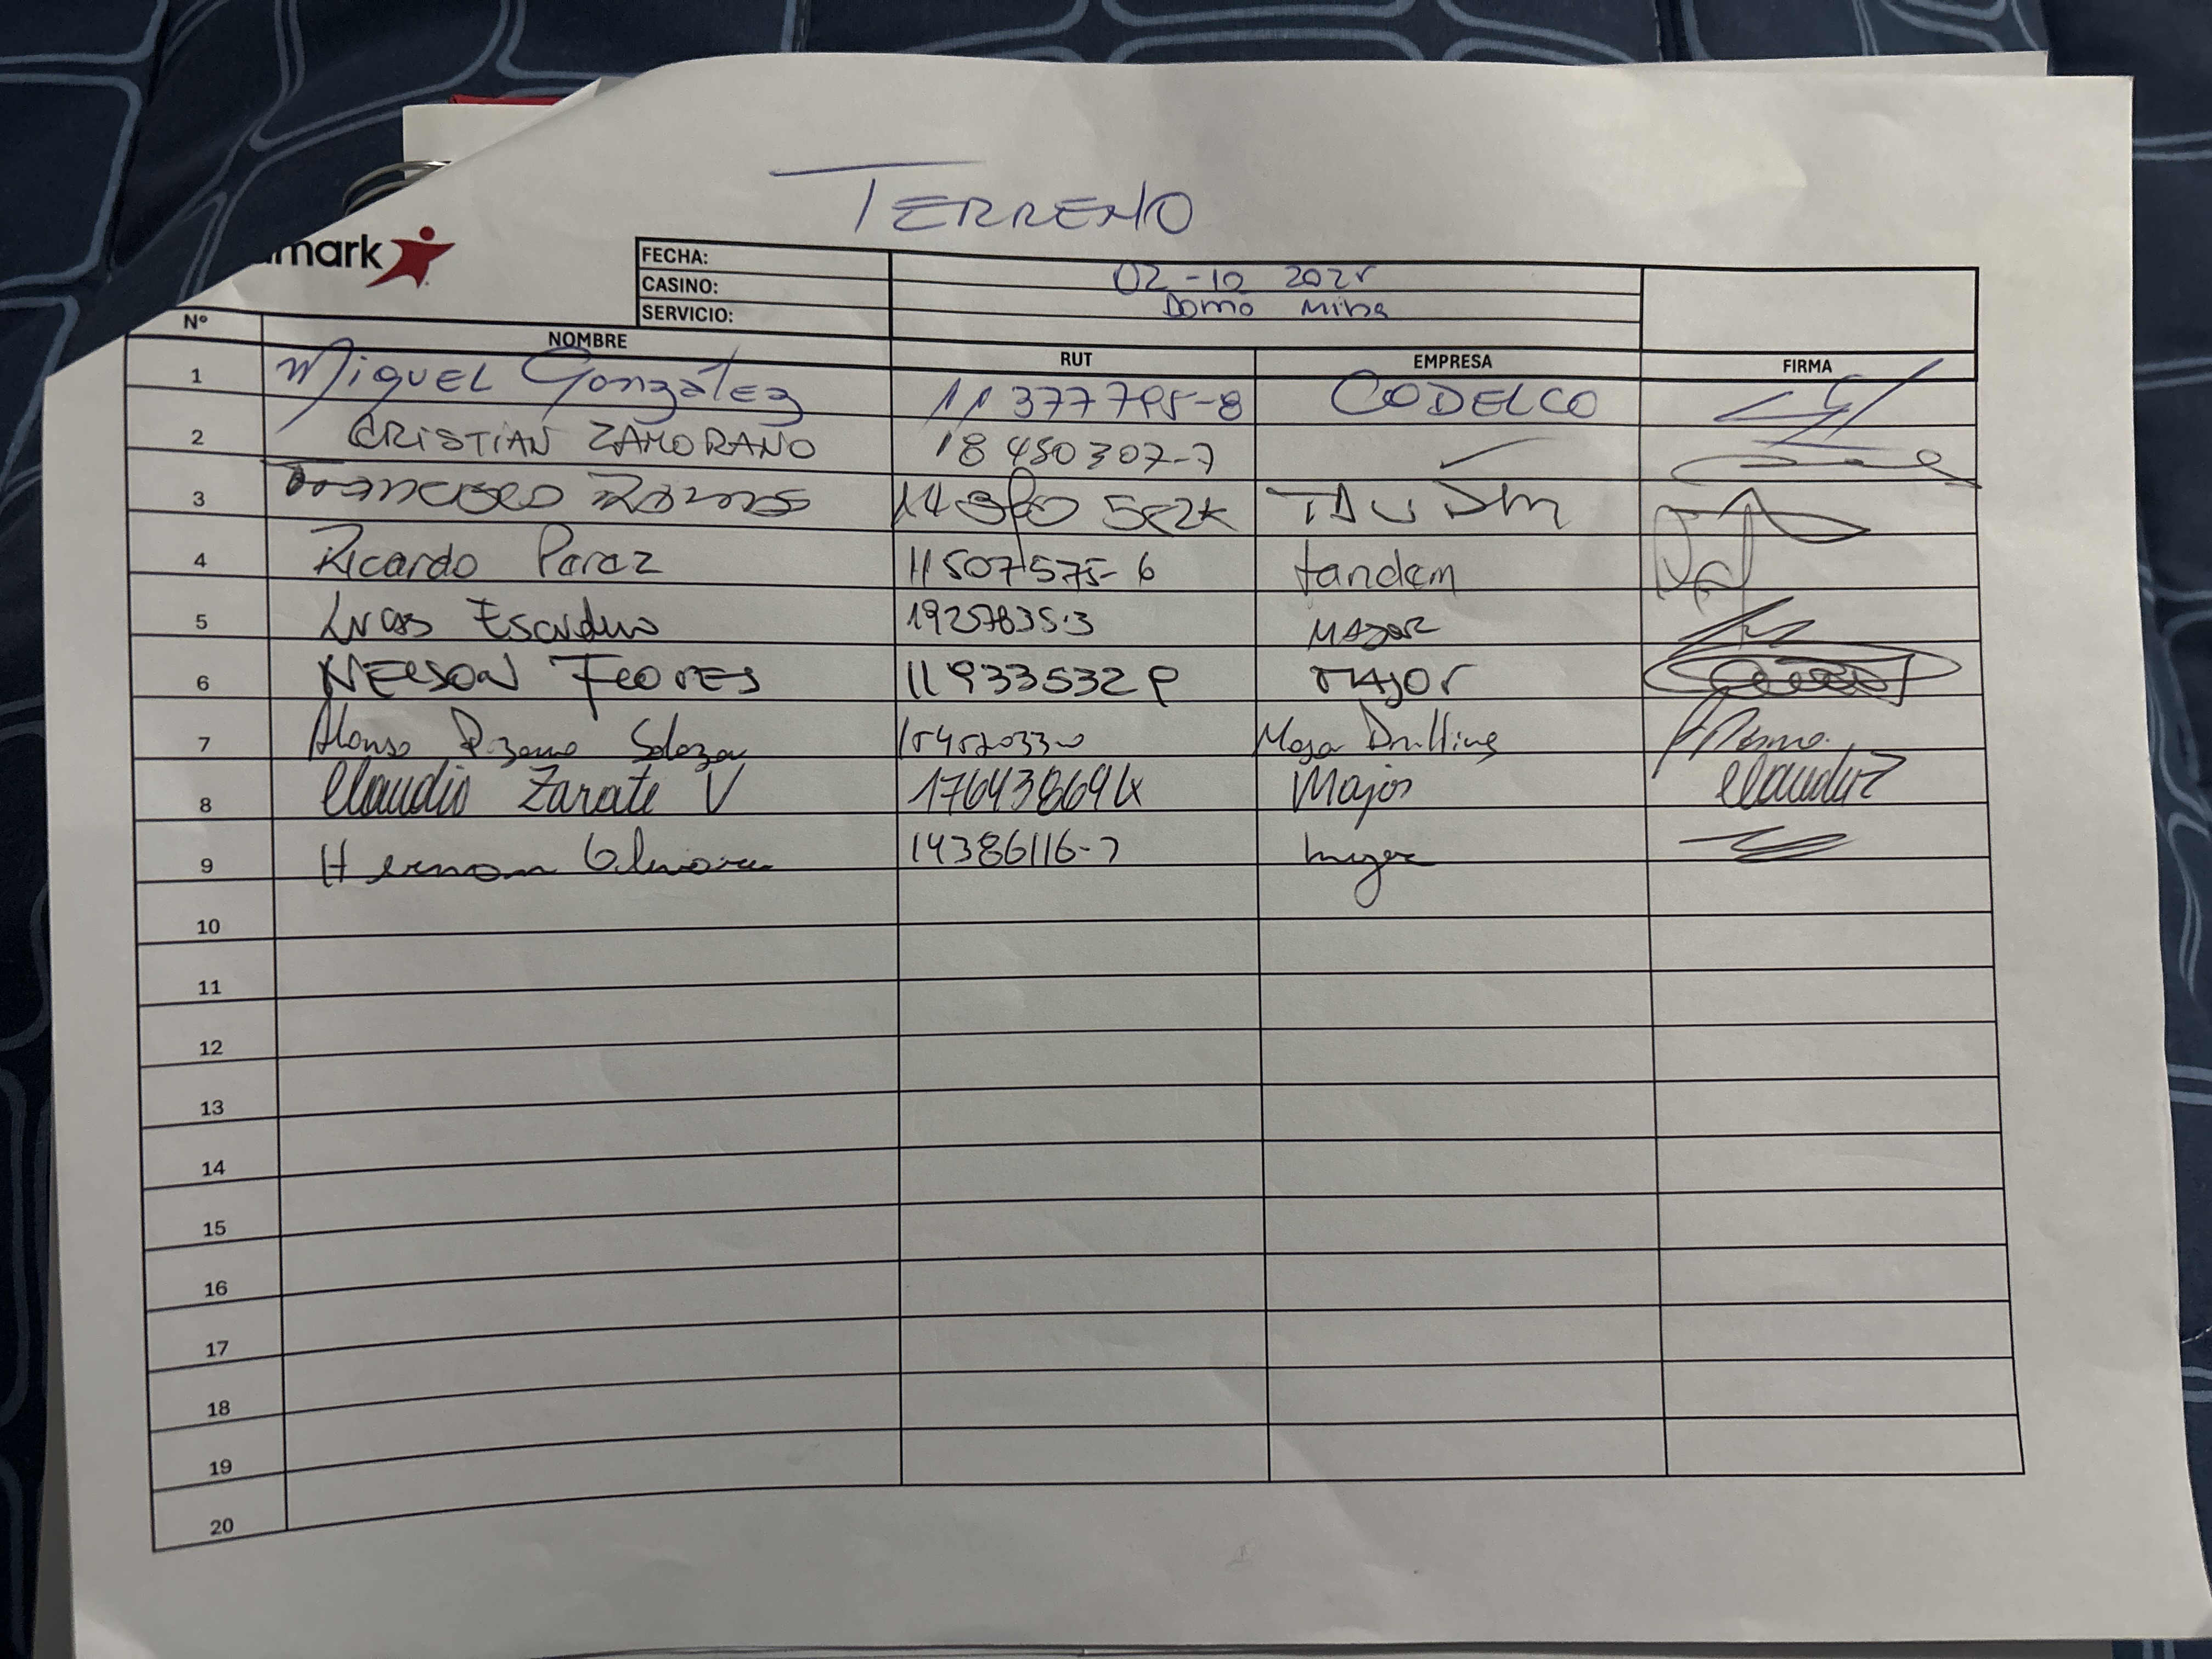 TERRENO
mark
FECHA: 02-10 2025
CASINO: Domo Mina
SERVICIO:
Nº NOMBRE RUT EMPRESA FIRMA
1 Miguel González 11377795-8 CODELCO
2 CRISTIAN ZAMORANO 18450307-7 ✓
3 Francisco
4 Ricardo Perez 11507575-6 tandem
5 Lucas Escudero 19257835-3 MAJOR
6 NELSON FLORES 11933532 MAJOR
7 Alonso Salazar Drilling
8 Claudio Zarate V 17643869 Major
9 Hernan 14386116-7
10
11
12
13
14
15
16
17
18
19
20